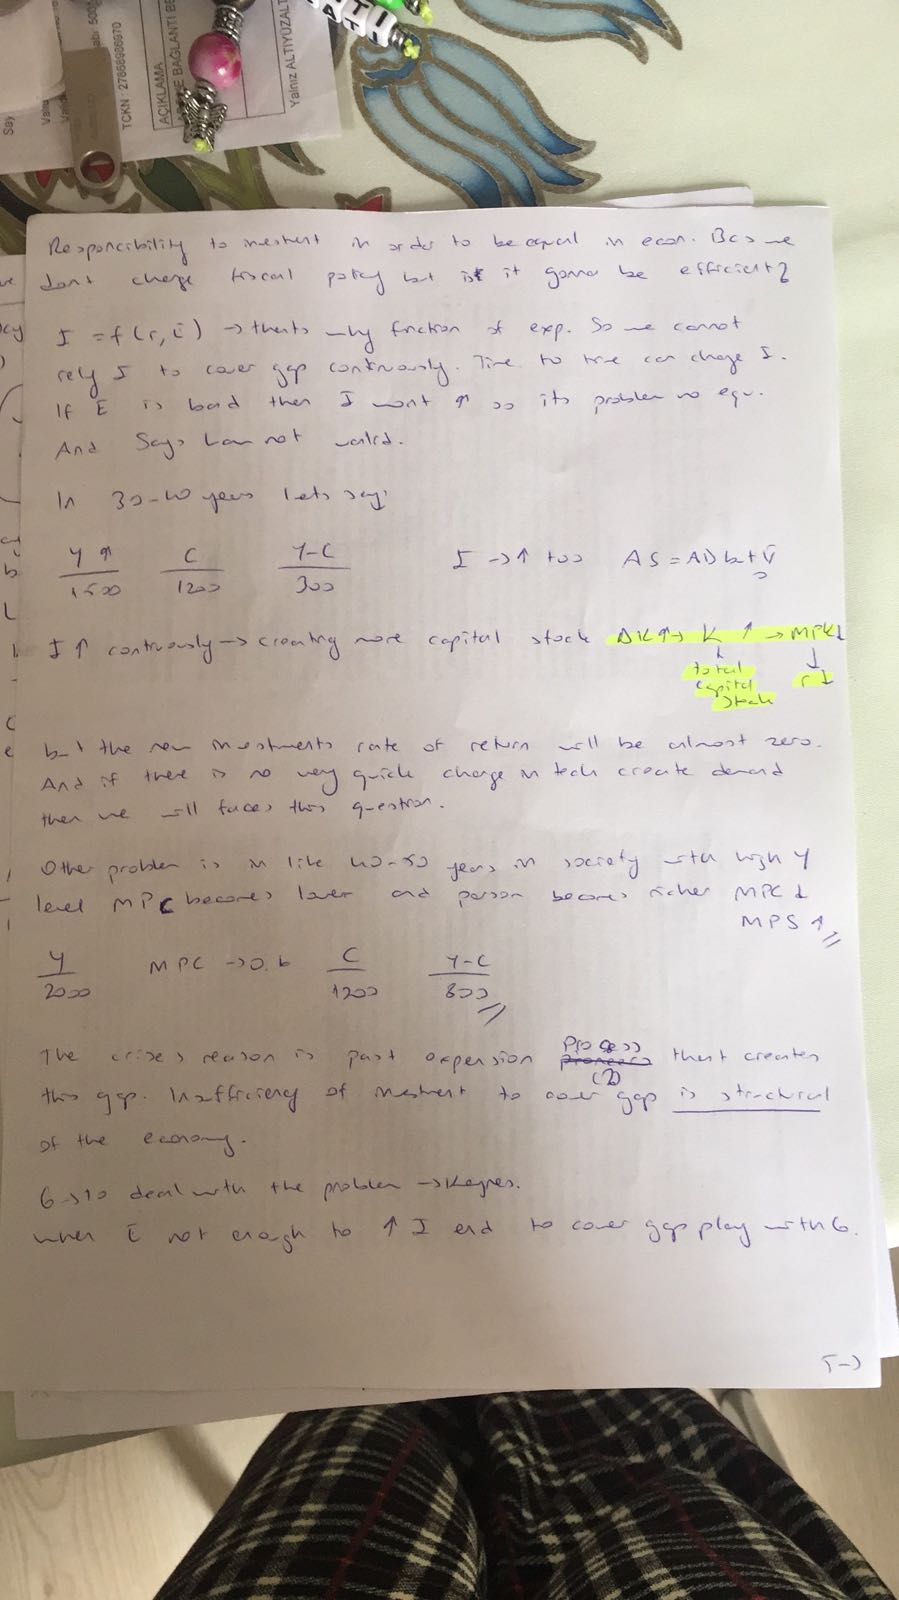 Say
TCKN : 27868986970
AÇIKLAMA
BAĞLANTI BE
Yalnız ALTIYÜZALT
Responcibility to inestment in order to be equal in econ. Bcs we
dont change fiscal policy but is it gonna be efficient?
I = f(r, E) → thats why function of exp. So we cannot
rely I to cover gap continuously. Time to time can change I.
If E is bad then I wont ↑ so its problem no equ.
And Says Law not valid.
In 30-40 years lets say:
Y ↑ C Y-C I → ↑ too AS = AD but
1500 1200 300
I ↑ continuously → creating more capital stock ΔK↑→ K ↑ → MPK↓
total r↓
capital
stock
but the new investments rate of return will be almost zero.
And if there is no very quick change in tech create demand
then we will faces this question.
Other problem is in like 40-50 years in society with high Y
level MPC becomes lower and person becomes richer MPC ↓
MPS ↑
Y MPC → 0.6 C Y-C
2000 1200 800
Process
The crises reason is past expension that creates
(2)
this gap. Insufficiency of investment to cover gap is structural
of the economy.
G → to deal with the problem → Keynes.
when E not enough to ↑ I and to cover gap play with G.